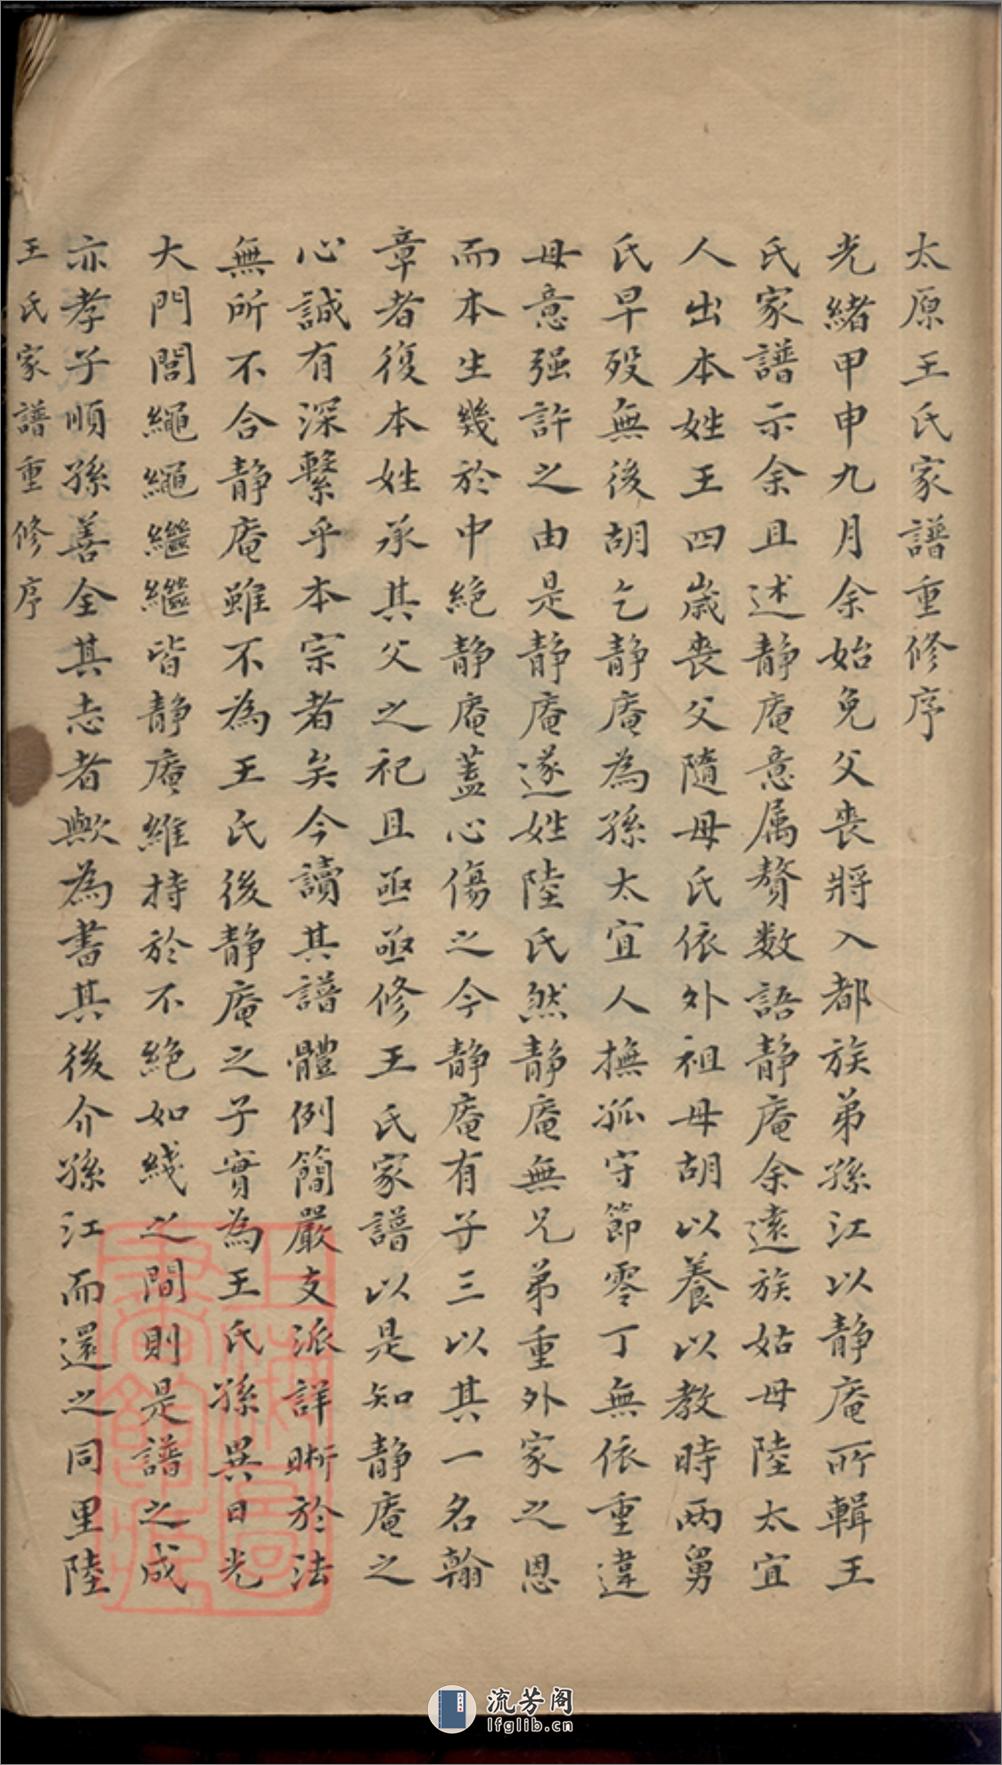 太原王氏家譜重修序
光緒甲申九月余始免父喪將入都族弟孫江以靜庵所輯王
氏家譜示余且述靜庵意属贅数語靜庵余遠族姑母陸太宜
人出本姓王四歲喪父隨母氏依外祖母胡以養以教時两舅
氏早殁無後胡乞靜庵為孫太宜人撫孤守節零丁無依重違
母意强許之由是靜庵遂姓陸氏然靜庵無兄弟重外家之恩
而本生幾於中絶靜庵蓋心傷之今靜庵有子三以其一名翰
章者復本姓承其父之祀且亟亟修王氏家譜以是知靜庵之
心誠有深繫乎本宗者矣今讀其譜體例簡嚴支派詳晰於法
無所不合靜庵雖不為王氏後靜庵之子實為王氏孫異日光
大門閭繩繩繼繼皆靜庵維持於不絶如綫之間則是譜之成
亦孝子順孫善全其志者歟為書其後介孫江而還之同里陸
王氏家譜重修序
上海圖書館藏
流芳阁
lfglib.cn